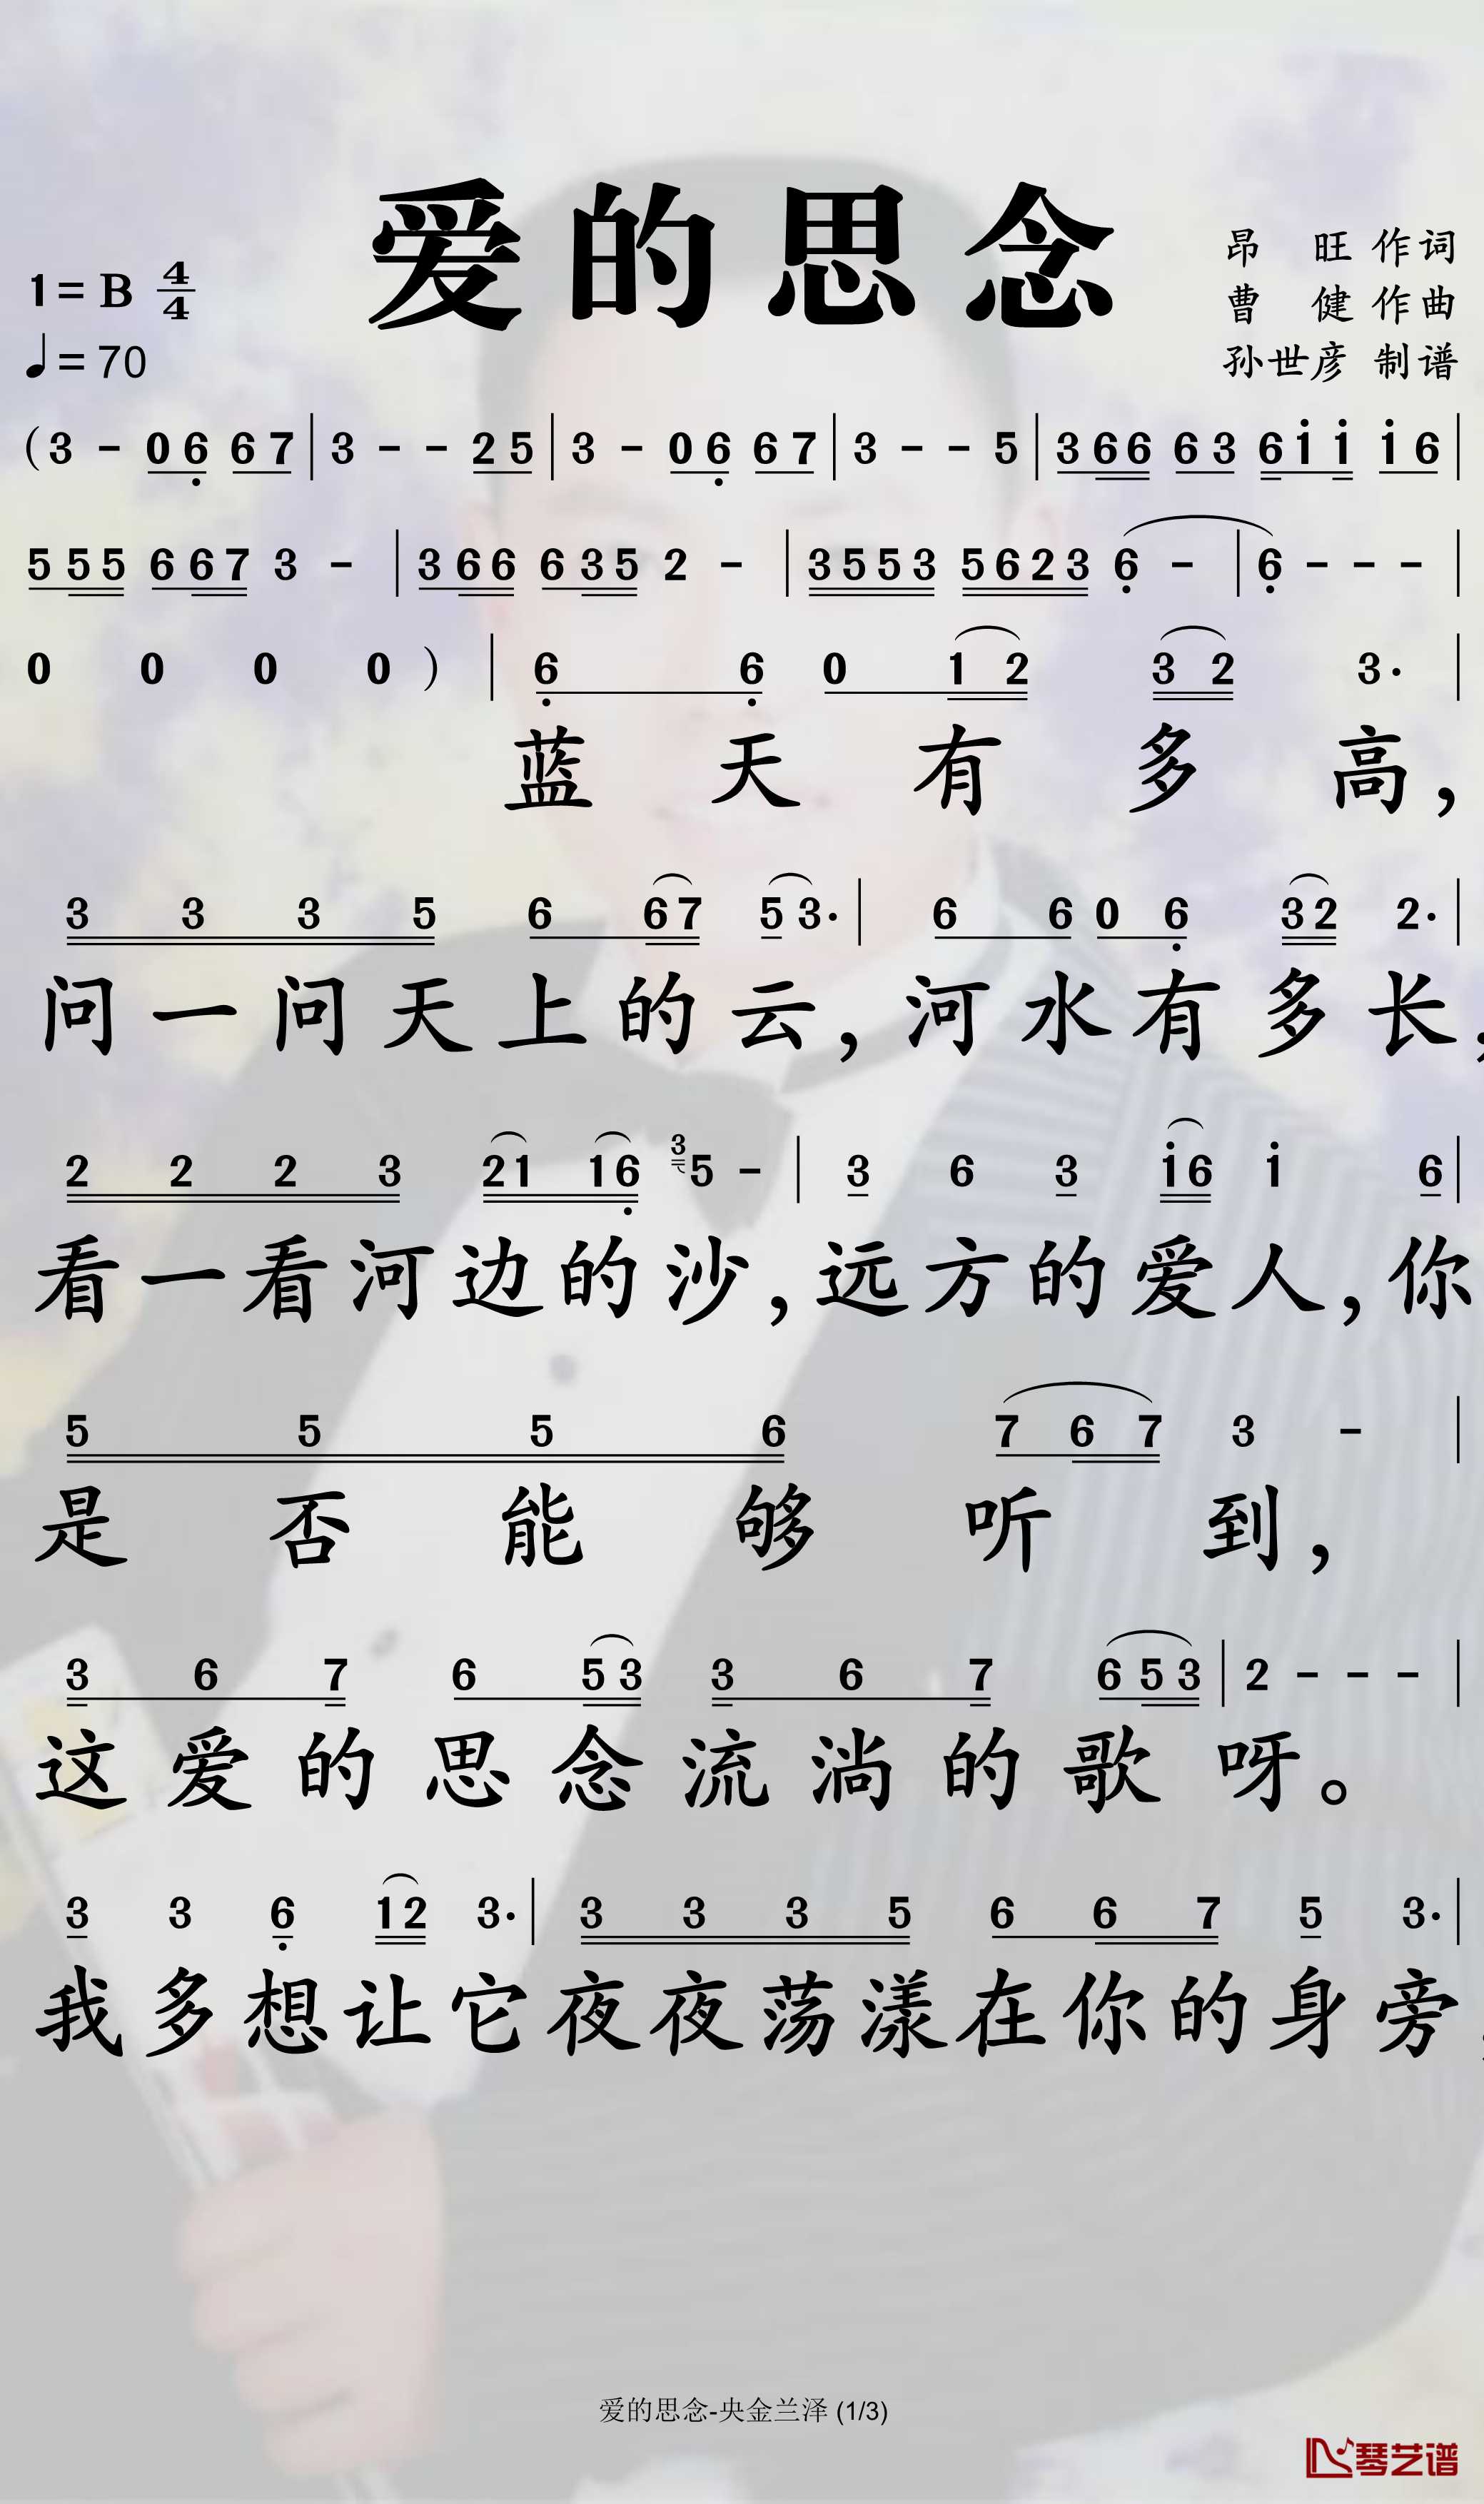 爱的思念
昂 旺 作词
1= B 4/4
曹 健 作曲
♩= 70
孙世彦 制谱
(3 - 0 6̣ 6 7 | 3 - - 2 5 | 3 - 0 6̣ 6 7 | 3 - - 5 | 3 6 6 6 3 6 i i i 6 |
5 5 5 6 6 7 3 - | 3 6 6 6 3 5 2 - | 3 5 5 3 5 6 2 3 6̣ - | 6̣ - - - |
0 0 0 0 ) | 6̣ 6̣ 0 1 2 3 2 3. |
蓝天有多高,
3 3 3 5 6 6 7 5 3. | 6 6 0 6̣ 3 2 2. |
问一问天上的云,河水有多长,
2 2 2 3 2 1 1 6̣ 3 5 - | 3 6 3 i 6 i 6 |
看一看河边的沙,远方的爱人,你
5 5 5 6 7 6 7 3 - |
是否能够听到,
3 6 7 6 5 3 3 6 7 6 5 3 | 2 - - - |
这爱的思念流淌的歌呀。
3 3 6̣ 1 2 3. | 3 3 3 5 6 6 7 5 3. |
我多想让它夜夜荡漾在你的身旁,
爱的思念-央金兰泽 (1/3)
琴艺谱